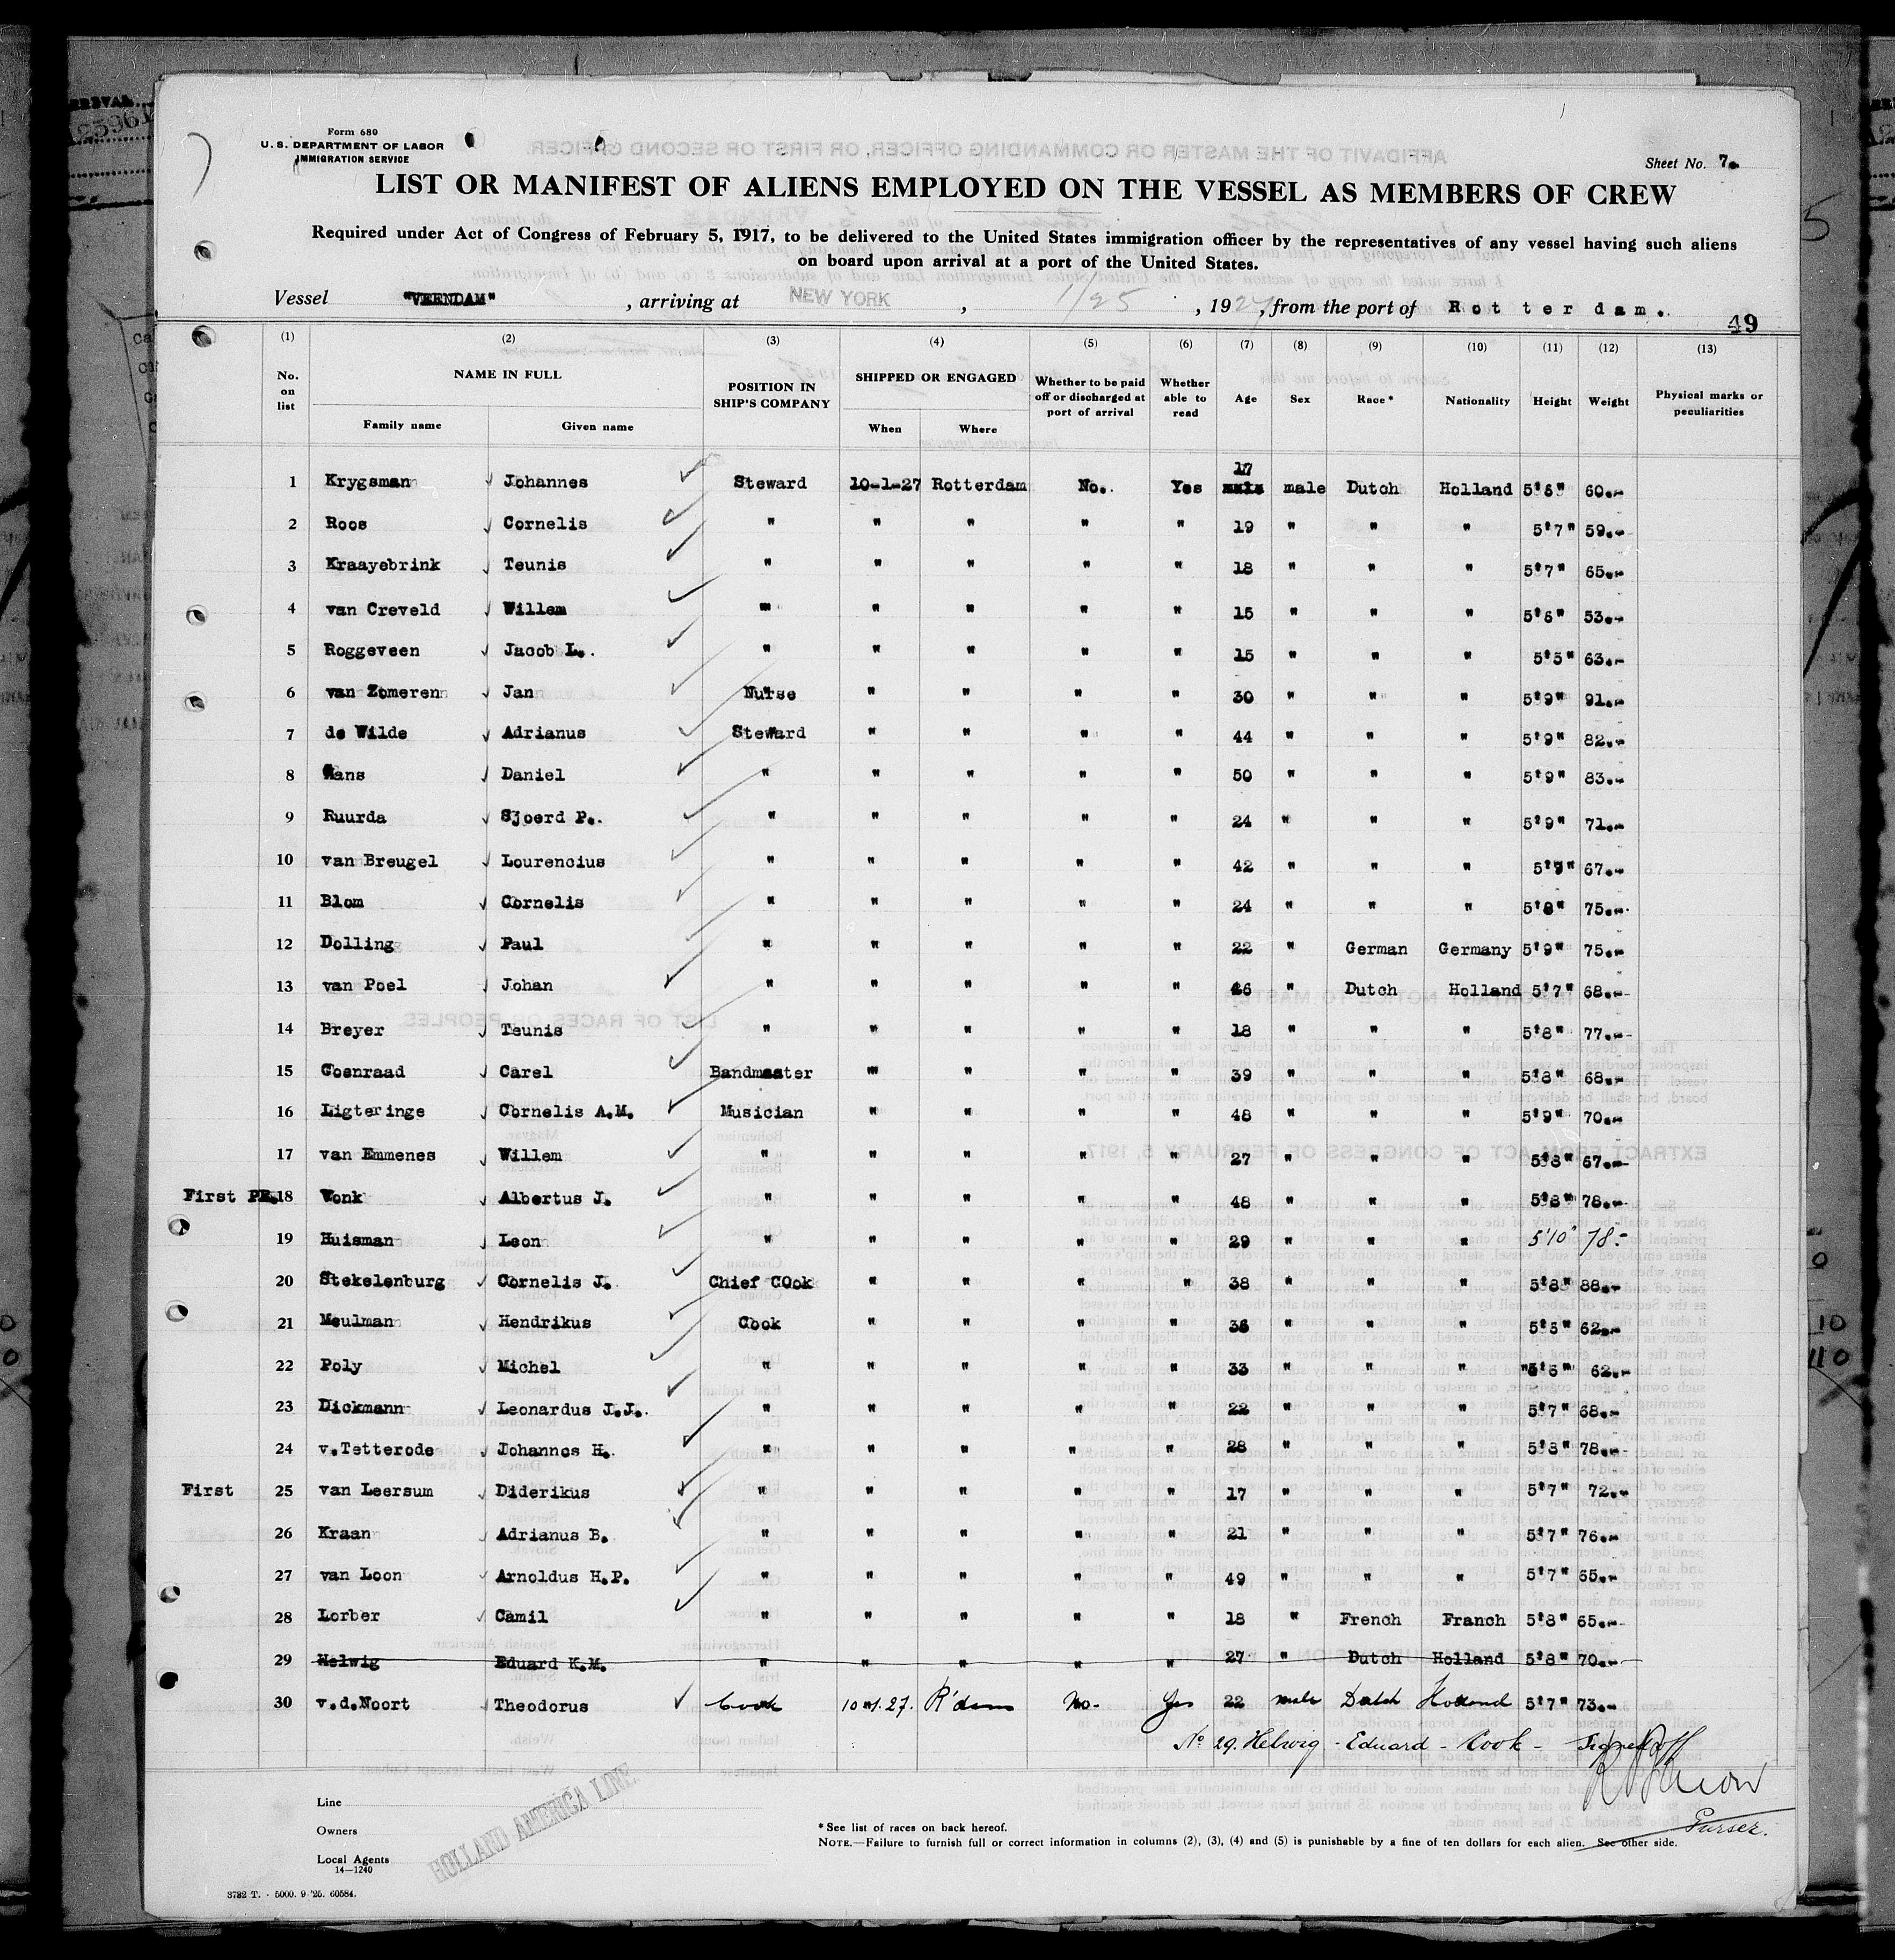 Form 680
U. S. DEPARTMENT OF LABOR
IMMIGRATION SERVICE
Sheet No. 7.
LIST OR MANIFEST OF ALIENS EMPLOYED ON THE VESSEL AS MEMBERS OF CREW
Required under Act of Congress of February 5, 1917, to be delivered to the United States immigration officer by the representatives of any vessel having such aliens
on board upon arrival at a port of the United States.
Vessel "VEENDAM", arriving at NEW YORK, 1/25, 1927, from the port of Rotterdam.
49
(1) (2) (3) (4) (5) (6) (7) (8) (9) (10) (11) (12) (13)
No. on list NAME IN FULL Family name Given name POSITION IN SHIP'S COMPANY SHIPPED OR ENGAGED When Where Whether to be paid off or discharged at port of arrival Whether able to read Age Sex Race* Nationality Height Weight Physical marks or peculiarities
1 Krygsman Johannes Steward 10-1-27 Rotterdam No. Yes 17 male Dutch Holland 5'6" 60.-
2 Roos Cornelis " " " " " 19 " " " 5'7" 59.-
3 Kraayebrink Teunis " " " " " 18 " " " 5'7" 65.-
4 van Creveld Willem " " " " " 15 " " " 5'6" 53.-
5 Roggeveen Jacob L. " " " " " 15 " " " 5'5" 63.-
6 van Zomeren Jan Nurse " " " " 30 " " " 5'9" 91.-
7 de Wilde Adrianus Steward " " " " 44 " " " 5'9" 82.-
8 Daniel " " " " " 50 " " " 5'9" 83.-
9 Ruurda Sjoerd P. " " " " " 24 " " " 5'9" 71.-
10 van Breugel Lourencius " " " " " 42 " " " 5'9" 67.-
11 Blom Cornelis " " " " " 24 " " " 5'8" 75.-
12 Dolling Paul " " " " " 22 " German Germany 5'9" 75.-
13 van Poel Johan " " " " " 26 " Dutch Holland 5'7" 68.-
14 Breyer Teunis " " " " " 18 " " " 5'8" 77.-
15 Coenraad Carel Bandmaster " " " " 39 " " " 5'8" 68.-
16 Ligteringe Cornelis A.M. Musician " " " " 48 " " " 5'9" 70.-
17 van Emmenes Willem " " " " " 27 " " " 5'8" 67.-
First PR. 18 Vonk Albertus J. " " " " " 48 " " " 5'8" 78.-
19 Huisman Leon " " " " " 29 " " " 5'10" 78.-
20 Stekelenburg Cornelis J. Chief COok " " " " 38 " " " 5'8" 88.-
21 Meulman Hendrikus Cook " " " " 36 " " " 5'5" 62.-
22 Poly Michel " " " " " 33 " " " 5'6" 62.-
23 Dickmann Leonardus J.J. " " " " " 22 " " " 5'7" 68.-
24 v.Tetterode Johannes H. " " " " " 28 " " " 5'8" 78.-
First 25 van Leersum Diderikus " " " " " 17 " " " 5'7" 72.-
26 Kraan Adrianus B. " " " " " 21 " " " 5'7" 76.-
27 van Loon Arnoldus H.P. " " " " " 49 " " " 5'7" 65.-
28 Lorber Camil " " " " " 18 " French Franch 5'8" 65.-
29 Helwig Eduard K.M. " " " " " 27 " Dutch Holland 5'8" 70.-
30 v.d.Noort Theodorus Cook 10-1.27. R'dam No- Yes 22 male Dutch Holland 5'7" 73.-
No 29. Helwig - Eduard - Cook - Signed off
Purser.
Line
Owners
Local Agents
HOLLAND AMERICA LINE
14—1240
* See list of races on back hereof.
NOTE.—Failure to furnish full or correct information in columns (2), (3), (4) and (5) is punishable by a fine of ten dollars for each alien. See other side.
3782 T. - 5000. 9 '25. 60584.